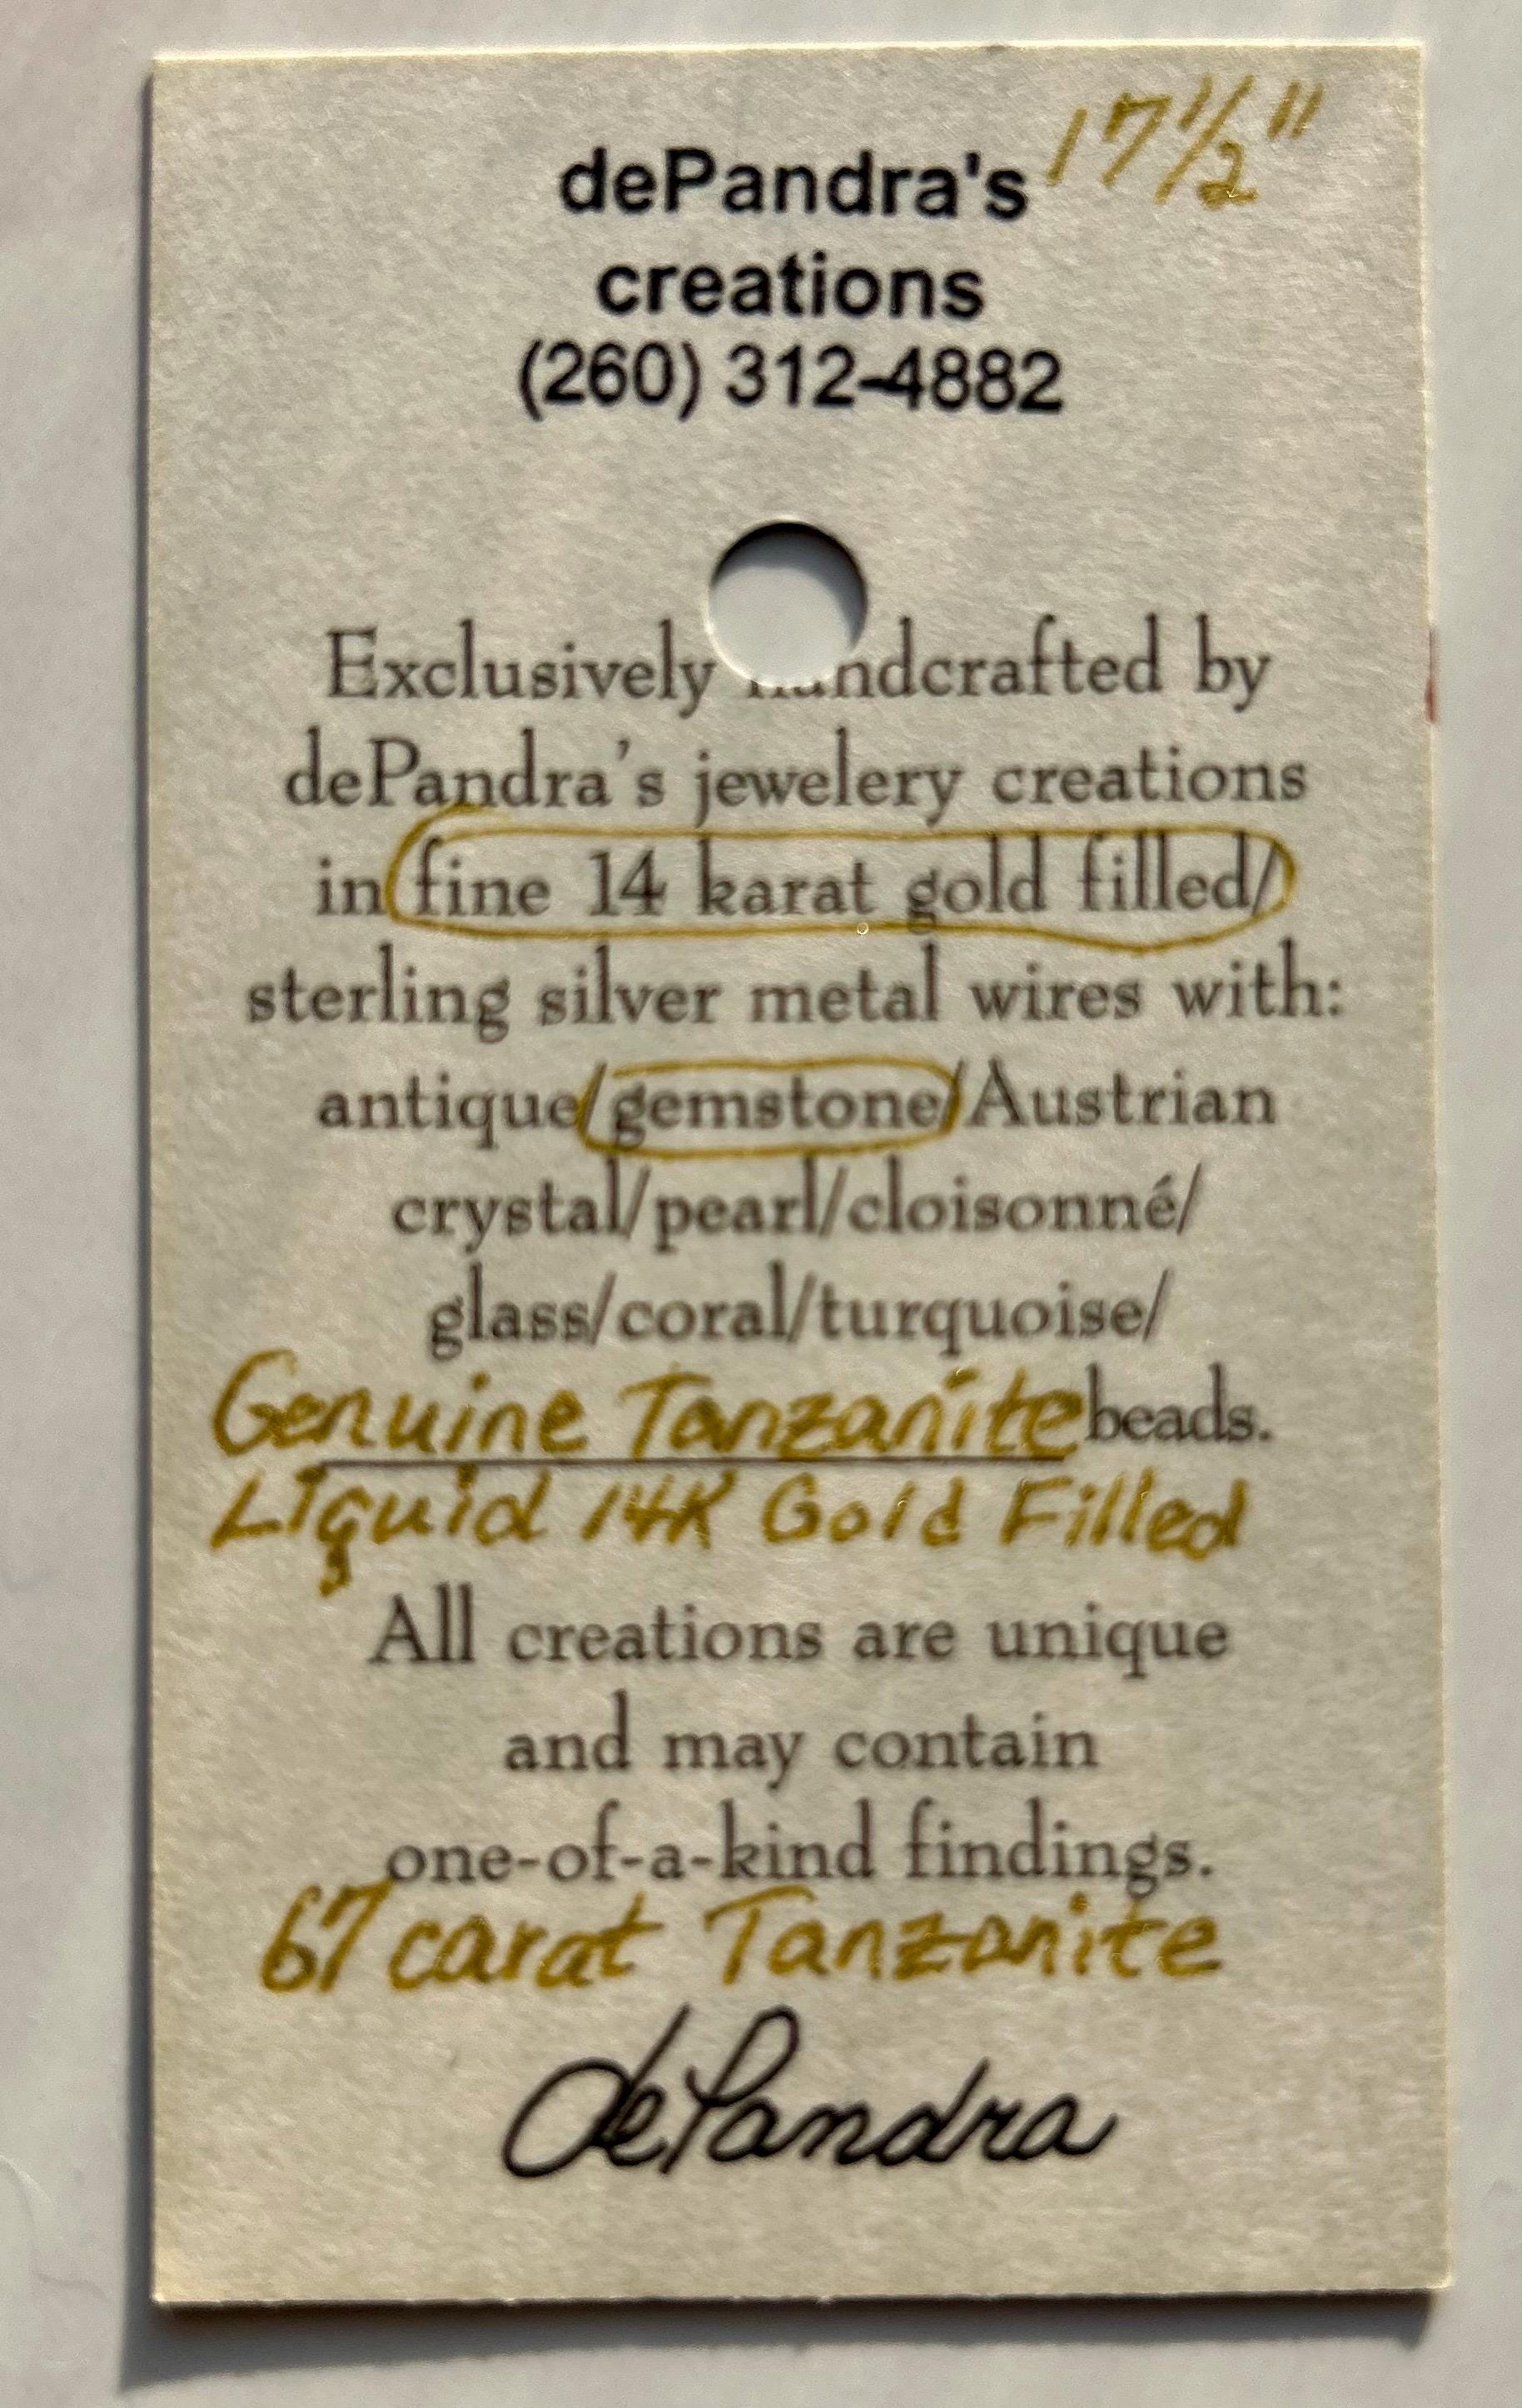 17 1/2"
dePandra's
creations
(260) 312-4882
Exclusively handcrafted by
dePandra's jewelery creations
in fine 14 karat gold filled/
sterling silver metal wires with:
antique/gemstone/Austrian
crystal/pearl/cloisonné/
glass/coral/turquoise/
Genuine Tanzanite beads.
Liquid 14K Gold Filled
All creations are unique
and may contain
one-of-a-kind findings.
67 carat Tanzanite
dePandra